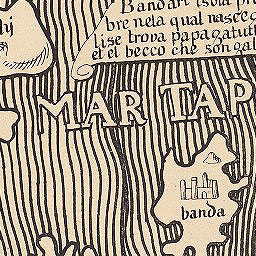 Bandan isola pri
bre nela qual nasce g
lise trova papagatutt
et el becco che son gal
hi
MAR TAP
banda